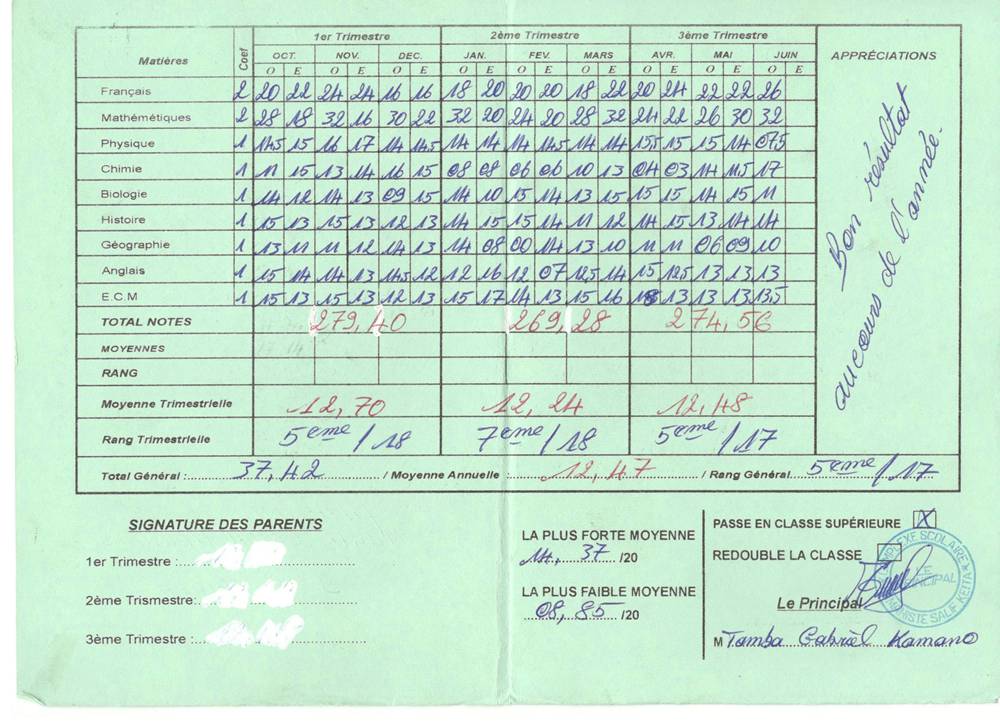 1er Trimestre 2ème Trimestre 3ème Trimestre
Matières Coef OCT. NOV. DEC. JAN. FEV. MARS AVR. MAI JUIN APPRÉCIATIONS
O E O E O E O E O E O E O E O E O E
Français 2 20 22 24 24 16 16 18 20 20 20 18 22 20 24 22 22 26
Mathémétiques 2 28 18 32 16 30 22 32 20 24 20 28 32 24 22 26 30 32
Physique 1 14.5 15 16 17 14 14.5 14 14 14 14.5 14 14 15.5 15 15 14 07.5
Chimie 1 11 15 13 14 16 15 08 08 06 06 10 13 04 03 14 11.5 17
Biologie 1 14 12 14 13 09 15 14 10 15 14 13 15 15 15 14 15 11
Histoire 1 15 13 15 13 12 13 14 15 15 14 11 12 14 15 13 14 14
Géographie 1 13 11 11 12 14 13 14 08 00 14 13 10 11 11 06 09 10
Anglais 1 15 14 14 13 14.5 12 12 16 12 07 12.5 14 15 12.5 13 13 13
E.C.M 1 15 13 15 13 12 13 15 17 14 13 15 16 13 13 13 13.5
TOTAL NOTES 279,40 269,28 274,56
MOYENNES
RANG
Moyenne Trimestrielle 12,70 12,24 12,48
Rang Trimestrielle 5eme/18 7eme/18 5eme/17
Bon résultat
aucours de l'année.
Total Général :37,42 / Moyenne Annuelle : 12,47 / Rang Général 5eme/17
SIGNATURE DES PARENTS
1er Trimestre :
2ème Trismestre:
3ème Trimestre :
LA PLUS FORTE MOYENNE
14, 37 /20
LA PLUS FAIBLE MOYENNE
08, 85 /20
PASSE EN CLASSE SUPÉRIEURE X
REDOUBLE LA CLASSE
Le Principal
M Tamba Gabriel Kamano
SCOLAIRE
LE
PRINCIPAL
SALIF KEITA